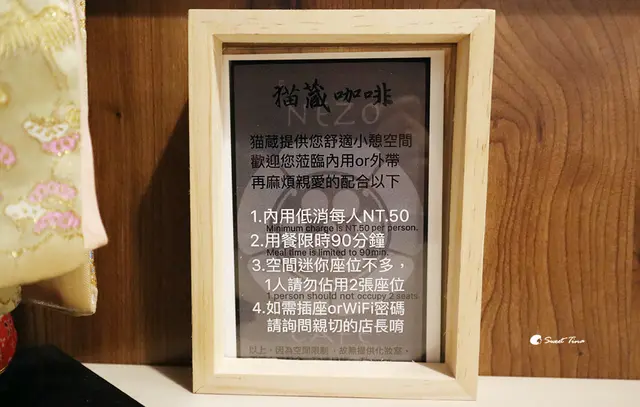 猫蔵咖啡
NeZo
猫蔵提供您舒適小憩空間
歡迎您蒞臨內用or外帶
再麻煩親愛的配合以下
1.內用低消每人NT.50
Minimum charge is NT.50 per person.
2.用餐限時90分鐘
Meal time is limited to 90min.
3.空間迷你座位不多，
1人請勿佔用2張座位
1 person should not occupy 2 seats
4.如需插座orWiFi密碼
請詢問親切的店長唷
以上，因為空間限制，故無提供化妝室。
Sweet Tina